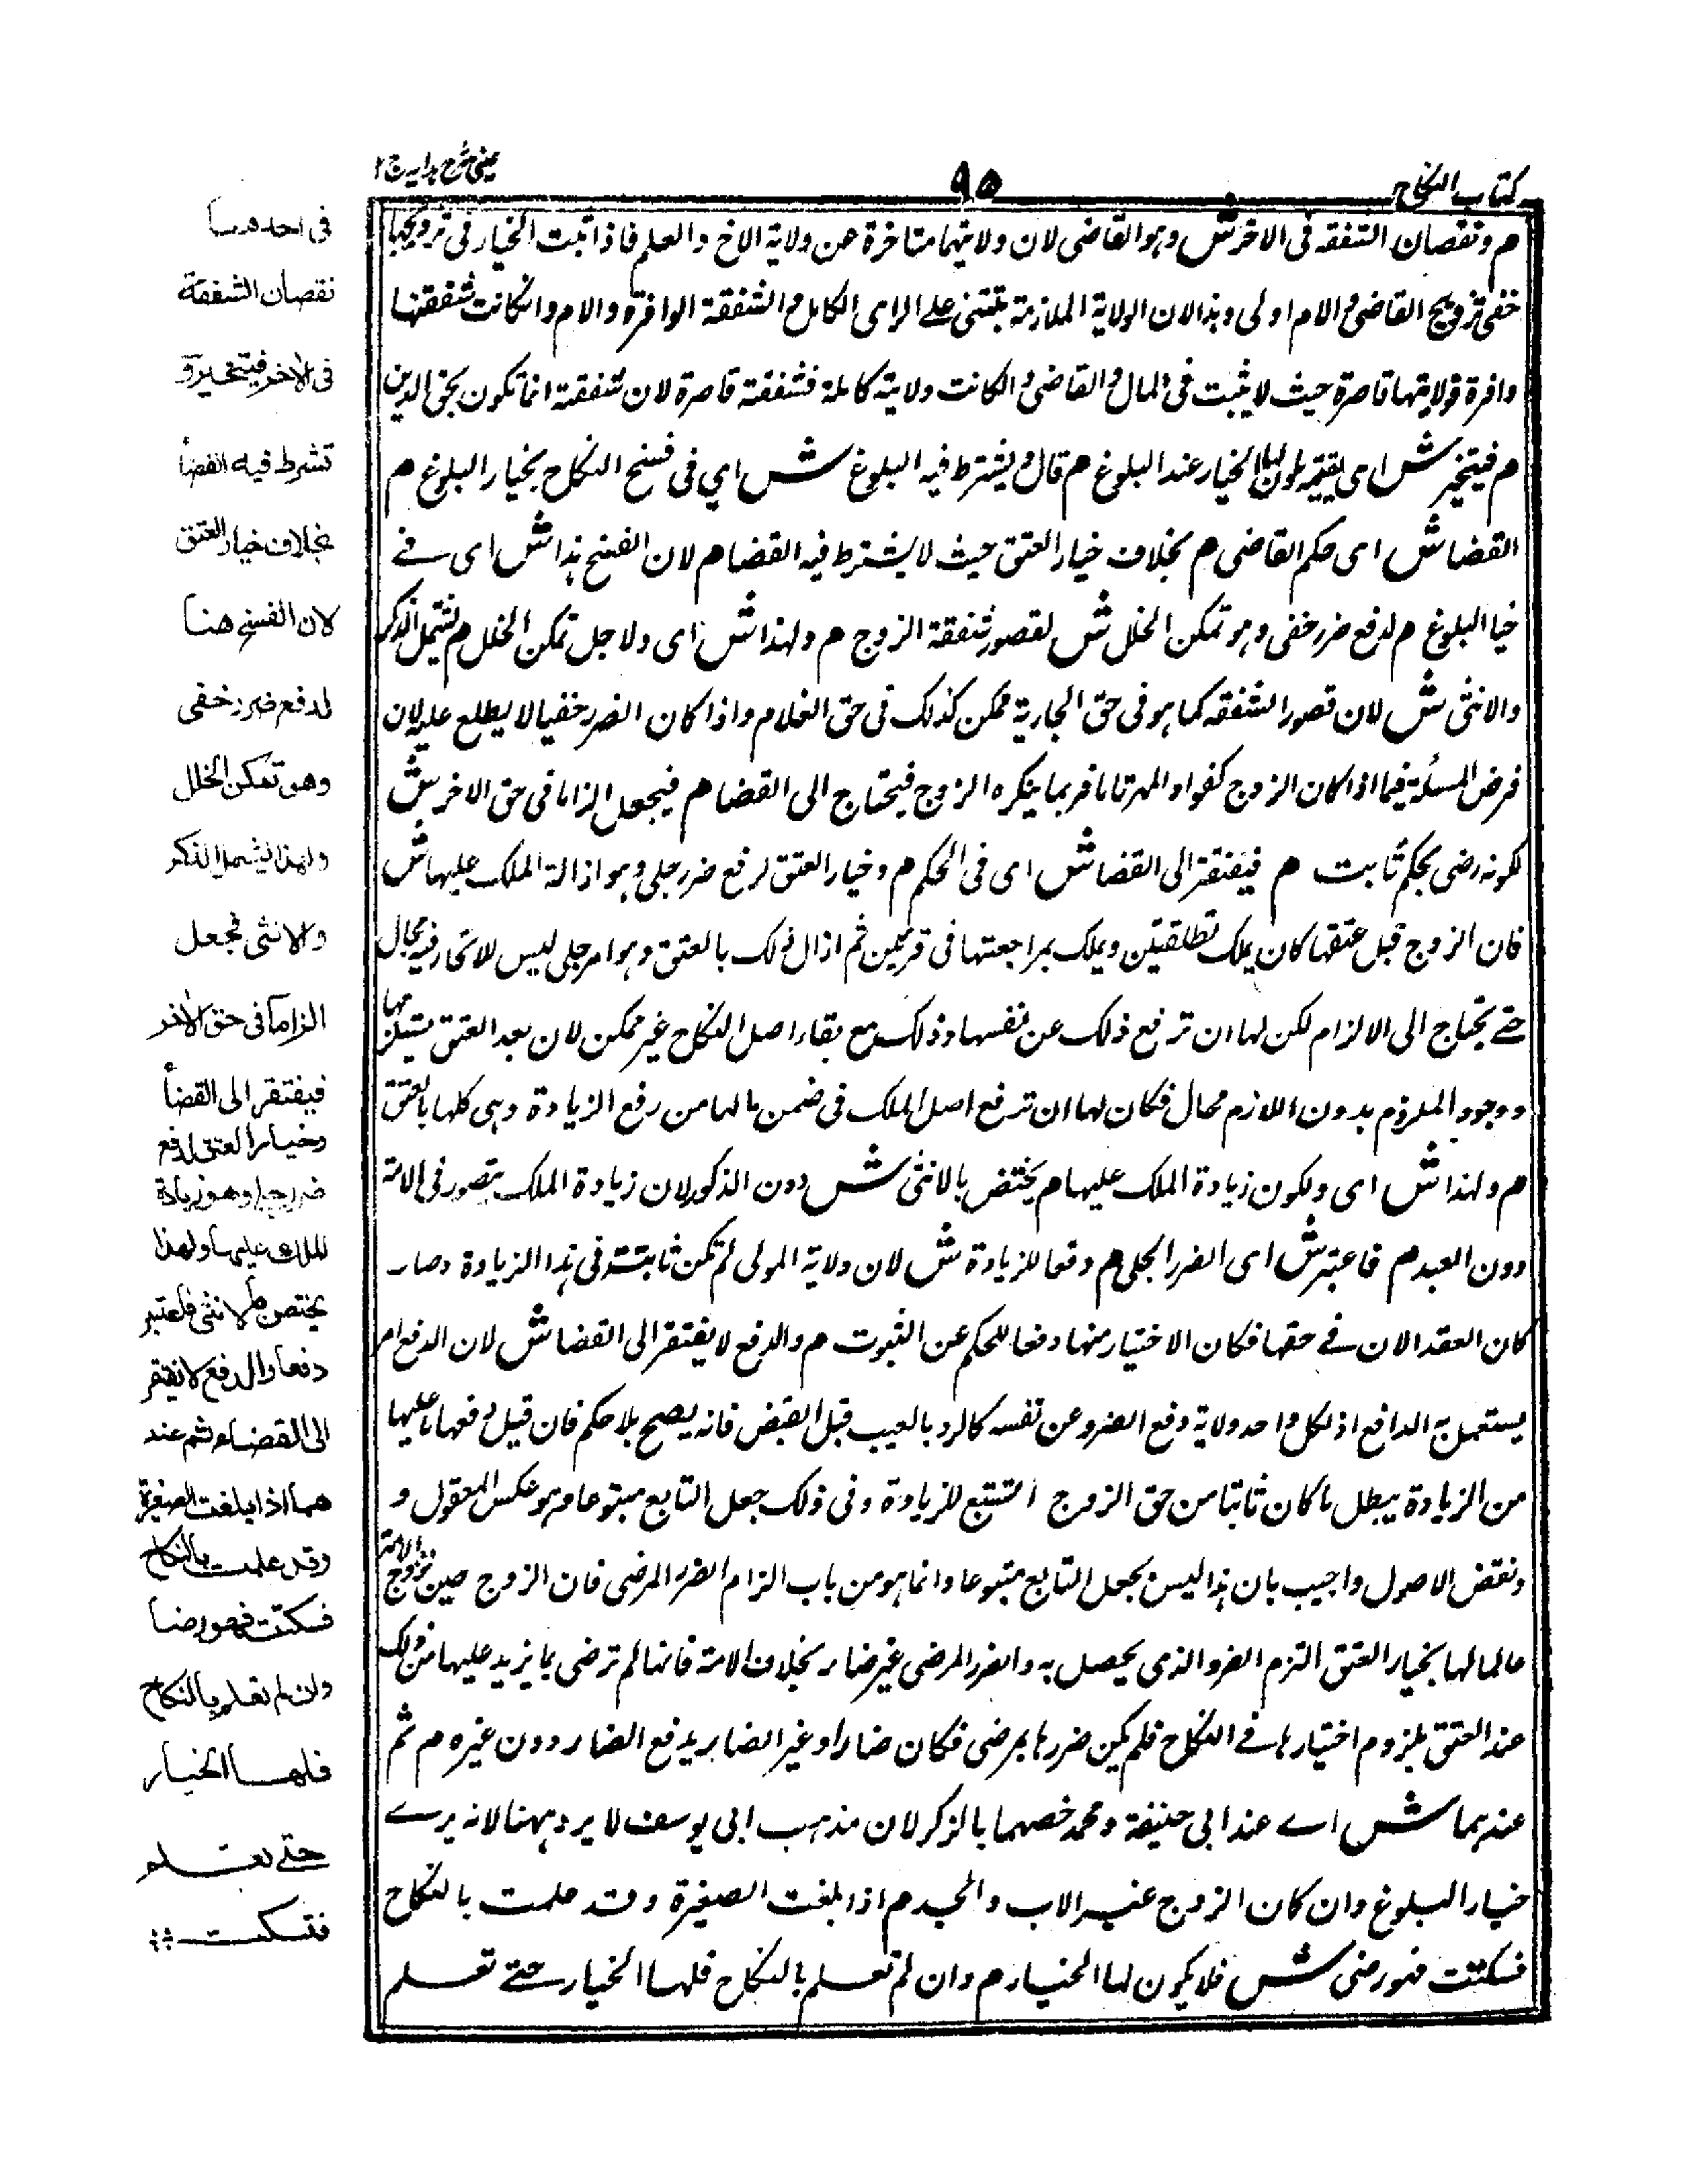 كتاب النكاح
٩٥
عينى شرح هدايه ج ٢
م ونقصان الشفقه فى الاخر ش وهو القاضى لان ولايتهما متاخرة عن ولاية الاخ والعم فاذا ثبت الخيار فى تزويجها
ففى تزويج القاضى والام اولى وهذا لان الولاية الملازمة تبتنى على الراى الكامل والشفقة الوافرة والام وان كانت شفقتها
وافرة فولايتها قاصرة حيث لا يثبت فى المال والقاضى وان كانت ولايته كاملة فشفقته قاصرة لان شفقته انما تكون بحق الدين
م فيتخير ش اى الخيار عند البلوغ م قال ويشترط فيه البلوغ ش اي فى فسخ النكاح بخيار البلوغ م
القضا ش اى حكم القاضى م بخلاف خيار العتق حيث لا يشترط فيه القضا م لان الفسخ هذا ش اى فے
خيا البلوغ م لدفع ضرر خفى وهو تمكن الخلل ش لقصور شفقة الزوج م ولهذا ش اى ولاجل تمكن الخلل م يشمل الذكر
والانثى ش لان قصور الشفقه كما هو فى حق الجارية ممكن كذلك فى حق الغلام واذا كان الضرر خفيا لا يطلع عليه لان
فرض المسألة فيما اذا كان الزوج كفوا والمهر تاما فربما ينكره الزوج فيحتاج الى القضا م فيجعل الزاما فى حق الاخر ش
لكونه رضى بحكم ثابت م فيفتقر الى القضا ش اى فى الحكم م وخيار العتق لرفع ضرر جلى وهو ازالة الملك عليها ش
فان الزوج قبل عتقها كان يملك تطلقيتين ويملك بمراجعتها فى قرئين ثم ازال ذلك بالعتق وهو امر جلى ليس للانكار فيه مجال
حتے يحتاج الى الالزام لكن لها ان ترفع ذلك عن نفسها وذلك مع بقاء اصل النكاح غير ممكن لان بعد العتق يستلزمها
ووجود الملزوم بدون اللازم محال فكان لها ان ترفع اصل الملك فى ضمن مالها من رفع الزيادة وهى كلها بالعتق
م ولهذا ش اى ولكون زيادة الملك عليها م يختص بالانثى ش دون الذكور لان زيادة الملك يتصور فى الامة
دون العبد م فاعتبر ش اى الضرر الجلى م دفعا للزيادة ش لان ولاية المولى لم تكن ثابتة فى هذا الزيادة وصار
كان العقد الان فے حقها فكان الاختيار منها دفعا للحكم عن الثبوت م والدفع لا يفتقر الى القضا ش لان الدفع امر
يستعمل به الدافع اذ لكل واحد ولاية دفع الضرر عن نفسه كالرد بالعيب قبل القبض فانه يصح بلا حكم فان قيل دفعها ما عليها
من الزيادة يبطل ما كان ثابتا من حق الزوج المستتبع للزيادة وفى ذلك جعل التابع متبوعا وهو عكس المعقول و
ونقض الاصول واجيب بان هذا ليس بجعل التابع متبوعا وانما هو من باب الزام الضرر المرضى فان الزوج حين تزوج الامة
عالما لها بخيار العتق التزم الضرر الذى يحصل به والضرر المرضى غير ضار بخلاف الامة فانها لم ترضى بما يزيد عليها من ذلك
عند العتق بلزوم اختيارها فے النكاح فلم يكن ضررها بمرضى فكان ضارا وغير الضا يريد فع الضار دون غيره م ثم
عندهما ش اے عند ابى حنيفة ومحمد خصهما بالذكر لان مذهب ابى يوسف لا يرد ههنا لانه يرے
خيار البلوغ وان كان الزوج غير الاب والجد م اذا بلغت الصغيرة وقد علمت بالنكاح
فسكتت فهو رضى ش فلا يكون لها الخيار م وان لم تعلم بالنكاح فلها الخيار حتے تعلم
فى احدهما
نقصان الشفقة
فى الاخر فيتخير و
تشرط فيه القضأ
بخلاف خيار العتق
لان الفسخ هنا
لدفع ضرر خفى
وهو تمكن الخلل
ولهذا يشمل الذكر
والانثى فجعل
الزاماً فى حق الاخر
فيفتقر الى القضأ
وخيار العتق لدفع
ضرر جلى وهو زيادة
الملك عليها ولهذا
يختص بالانثى فاعتبر
دفعا والدفع لا يفتقر
الى القضاء ثم عند
هما اذا بلغت الصغيرة
وقد علمت بالنكاح
فسكتت فهو رضا
وان لم تعلم بالنكاح
فلها الخيار
حتے تعلم
فتسكت